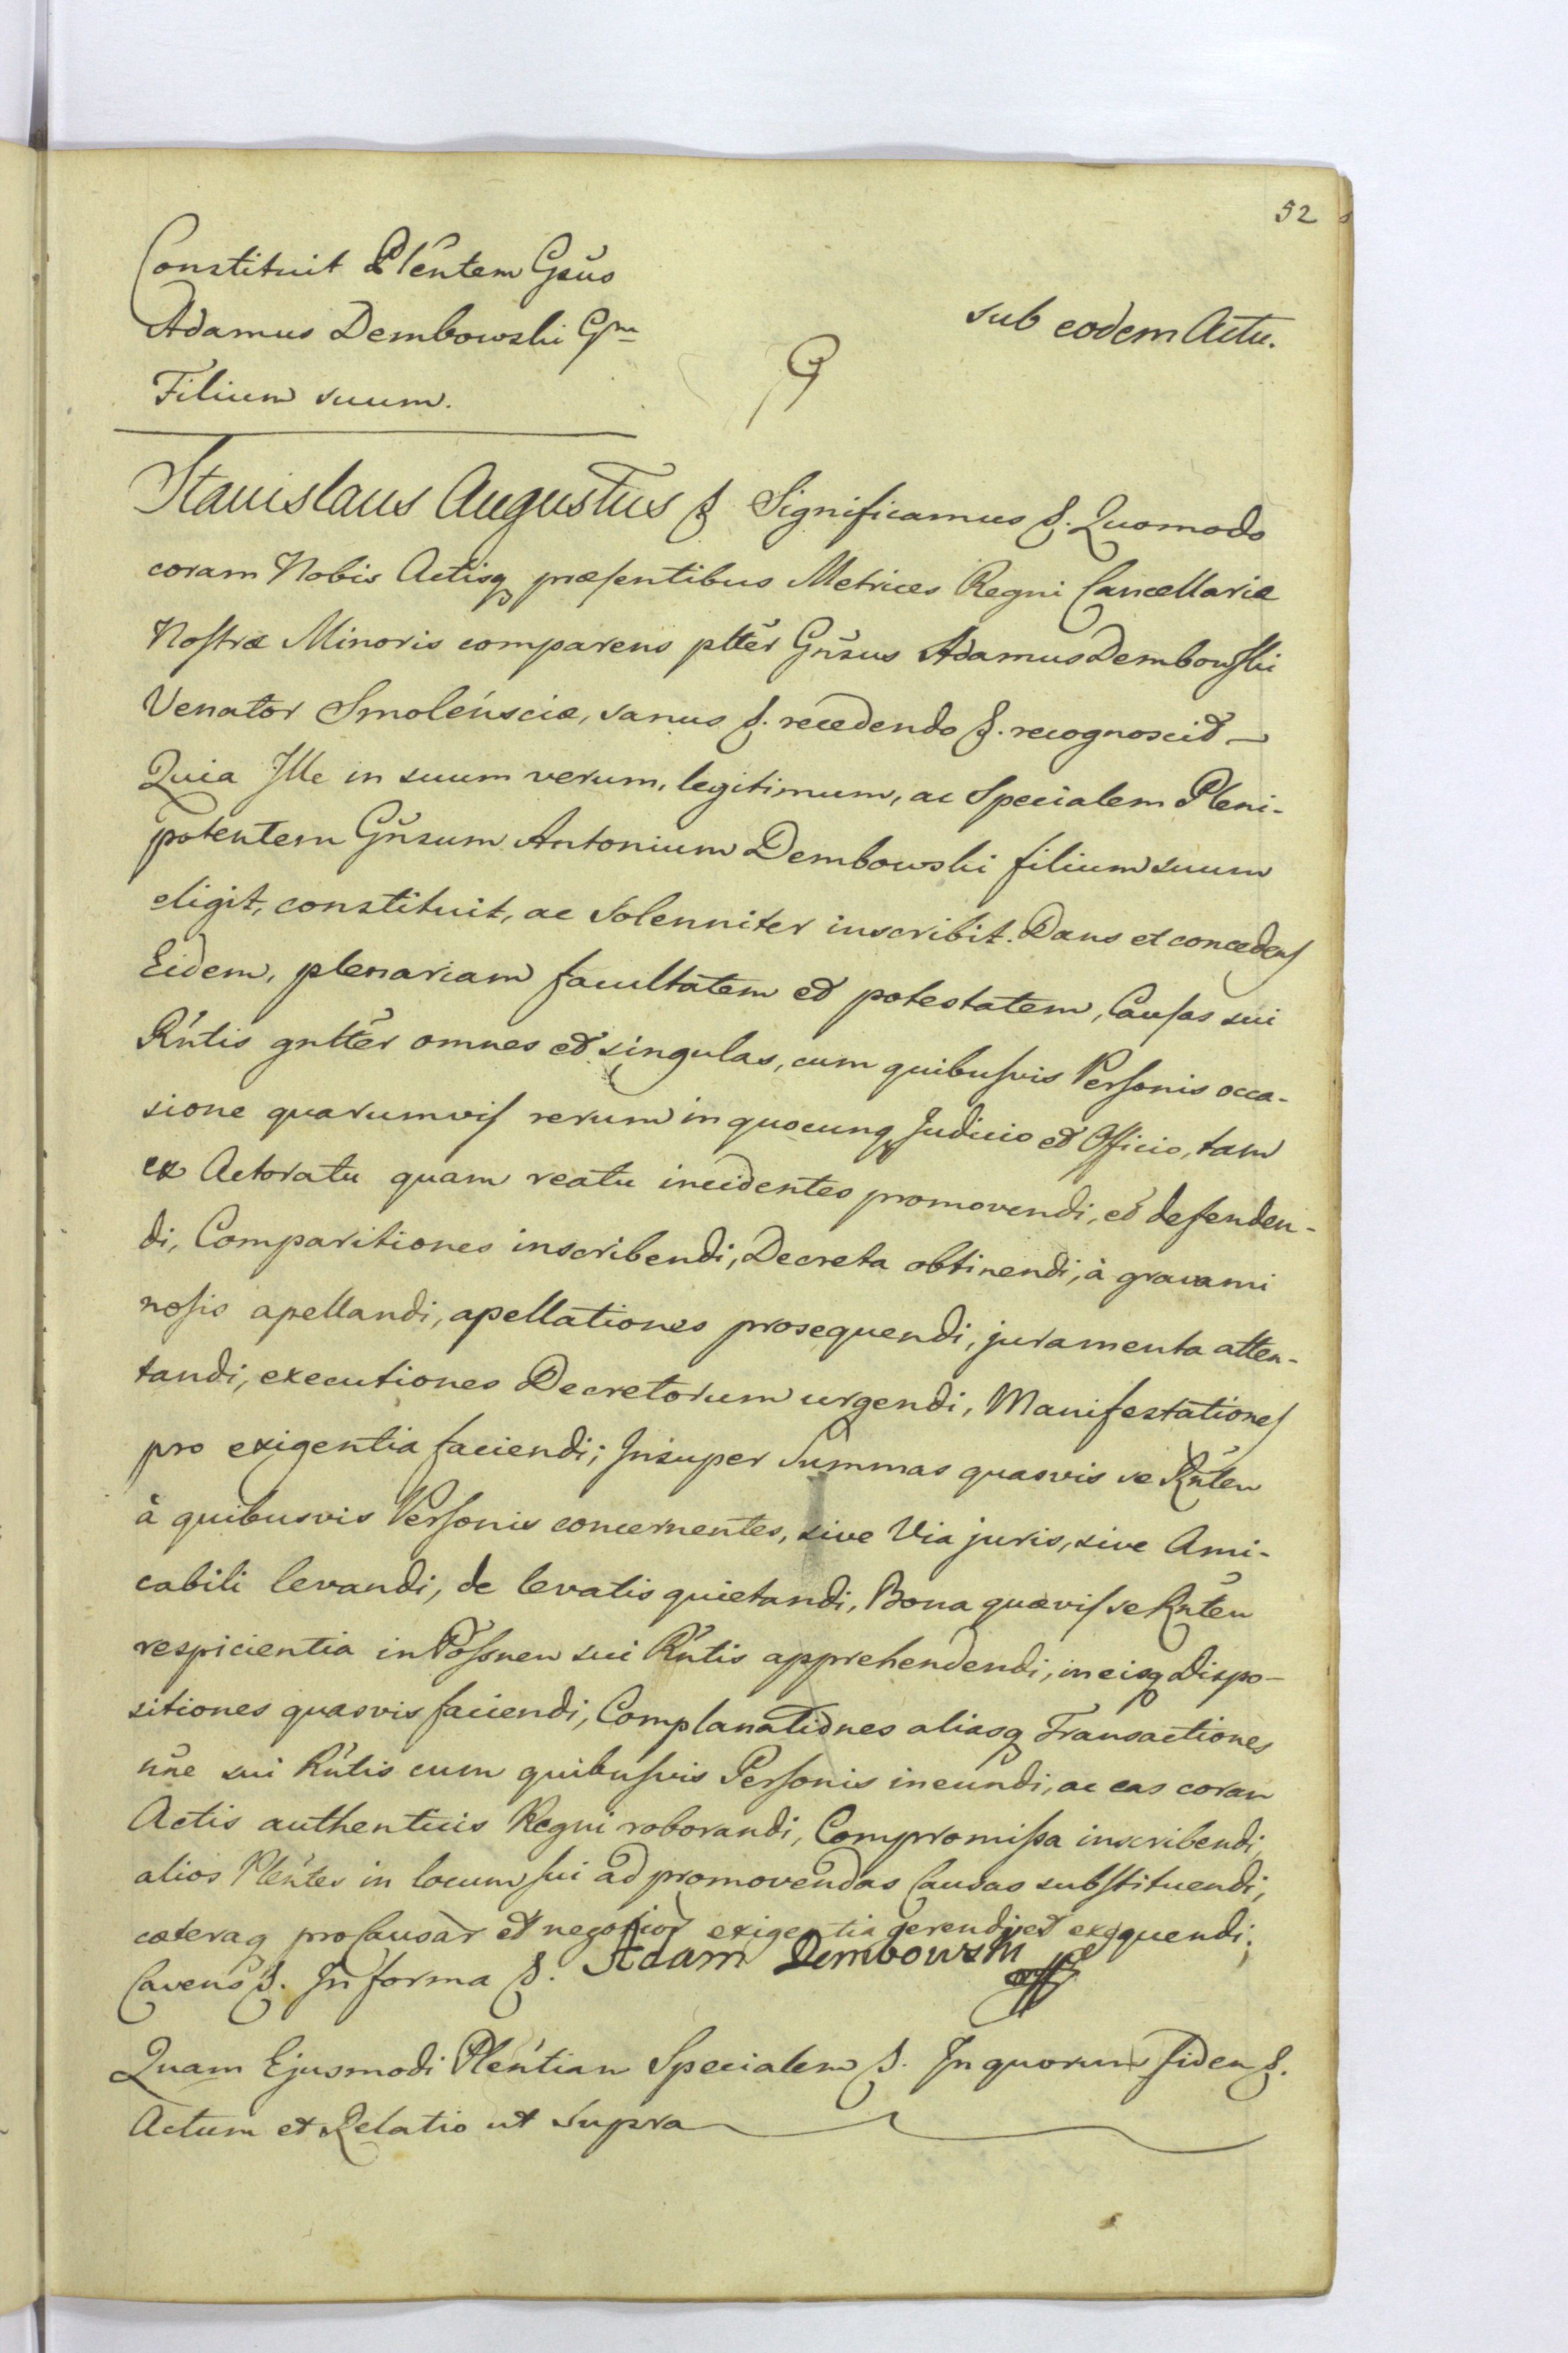 52
Constituit Plentem Gsus
Adamus Dembowski Gm
Filium suum.
sub eodem Actu.
Stanislaus Augustus &. Significamus &. Quomodo
coram Nobis Actisq præsentibus Metrices Regni Cancellariæ
Nostræ Minoris comparens pltter Gnsus Adamus Dembowski
Venator Smolensciæ, sanus &. recedendo &. recognoscit –
Quia Ille in suum verum, legitimum, ac Specialem Pleni-
potentem Gnsum Antonium Dembowski filium suum
eligit, constituit, ac solenniter inscribit. Dans et concedens
Eidem, plenariam facultatem et potestatem, Causas sui
Rntis gnltter omnes et singulas, cum quibusvis Personis occa-
sione quarumvis rerum in quocunq Judicio et Officio, tam
ex Actoratu quam reatu incidentes promovendi, et defenden-
di, Comparitiones inscribendi, Decreta obtinendi, à gravami
nosis apellandi, apellationes prosequendi, juramenta atten-
tandi, executiones Decretorum urgendi, Manifestationes
pro exigentia faciendi; Insuper Summas quasvis se Rnten
à quibusvis Personis concernentes, sive Via juris, sive Ami-
cabili levandi, de levatis quietandi, Bona quævis se Rnten
respicientia in Possnen sui Rntis apprehendendi, in eisq dispo-
sitiones quasvis faciendi, Complanationes aliasq Transactiones
nne sui Rntis cum quibusvis Personis ineundi, ac eas coram
Actis authenticis Regni roborandi, Compromissa inscribendi,
alios Plentes in locum sui ad promovendas Causas substituendi,
cæteraq pro Causar et negotior exigentia gerendi et exequendi;
Cavens &. In forma &. Adam Dembowski
Quam Ejusmodi Plentian Specialem &. In quorum fidem &.
Actum et Relatio ut supra